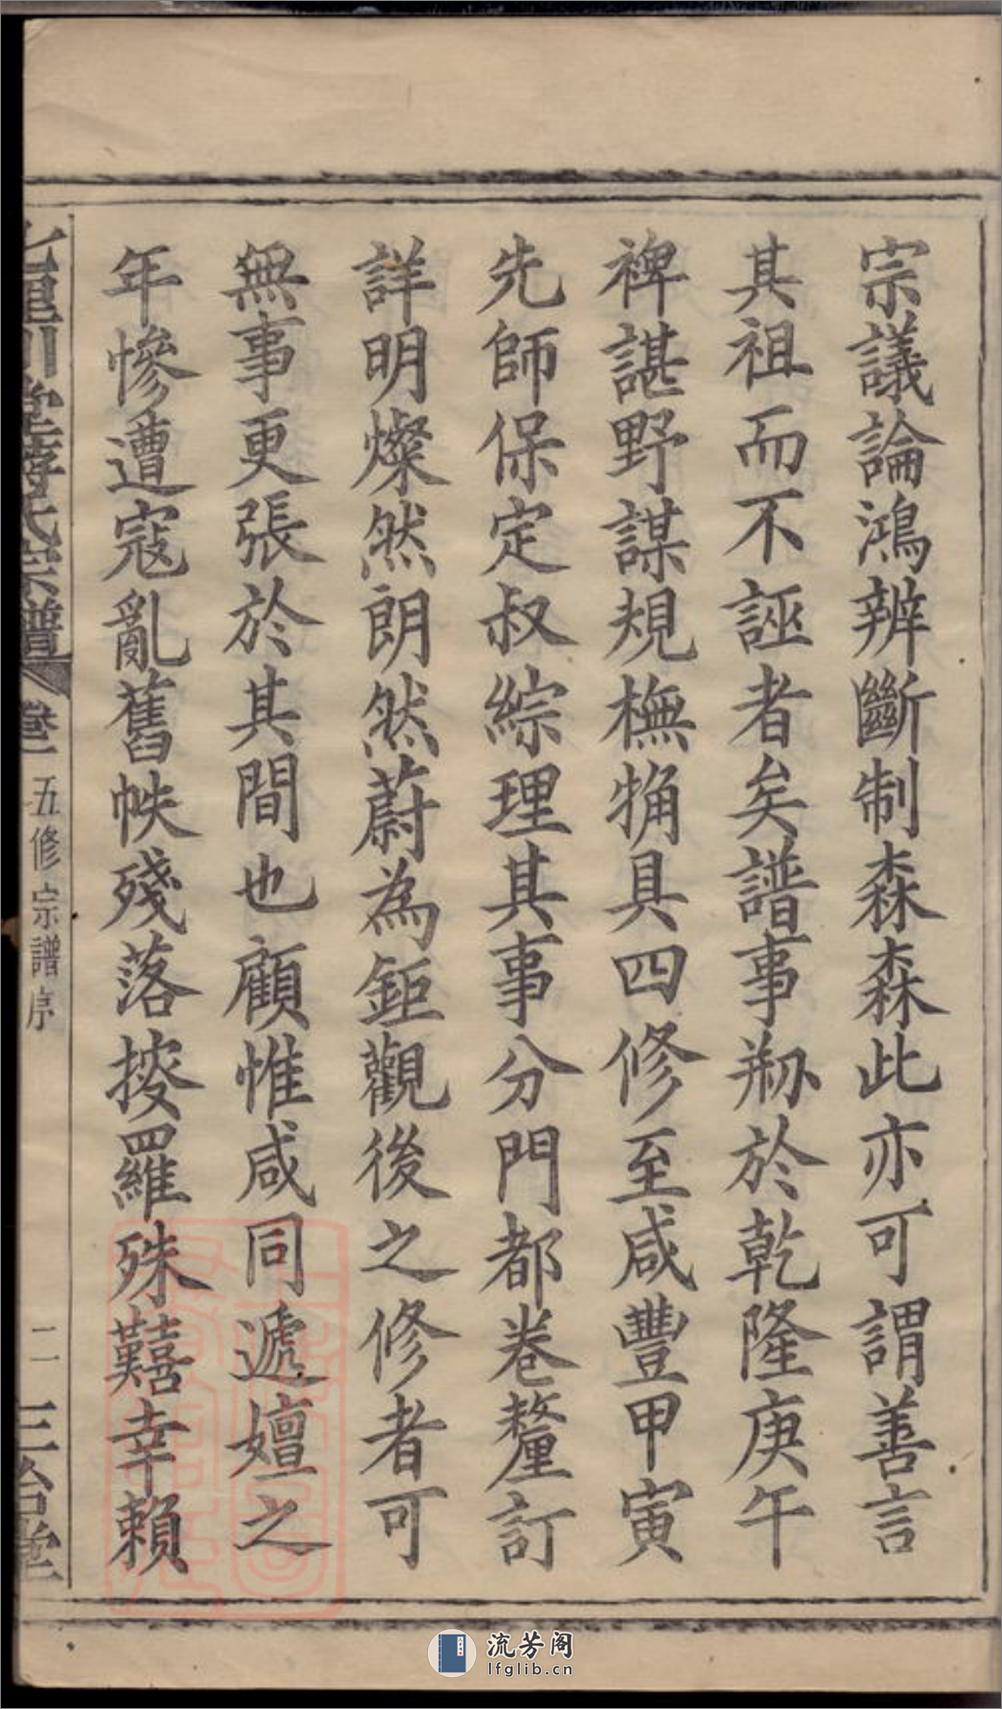 宗議論鴻辨斷制森森此亦可謂善言
其祖而不誣者矣譜事刱於乾隆庚午
裨諶野謀規橅觕具四修至咸豐甲寅
先師保定叔綜理其事分門都卷釐訂
詳明燦然朗然蔚為鉅觀後之修者可
無事更張於其間也顧惟咸同遞嬗之
年慘遭寇亂舊帙殘落搜羅殊囏幸賴
氏宗譜
卷一
五修宗譜序
二
三治堂
流芳阁
lfglib.cn